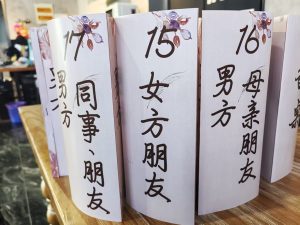 17
男方
同事、朋友
15
女方朋友
16
男方
母亲朋友